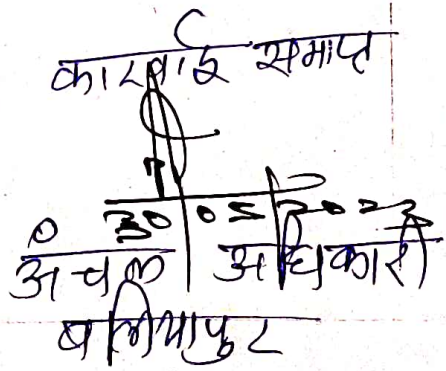 कारवाई समाप्त
30/05/2023
अंचल अधिकारी
बलियापुर